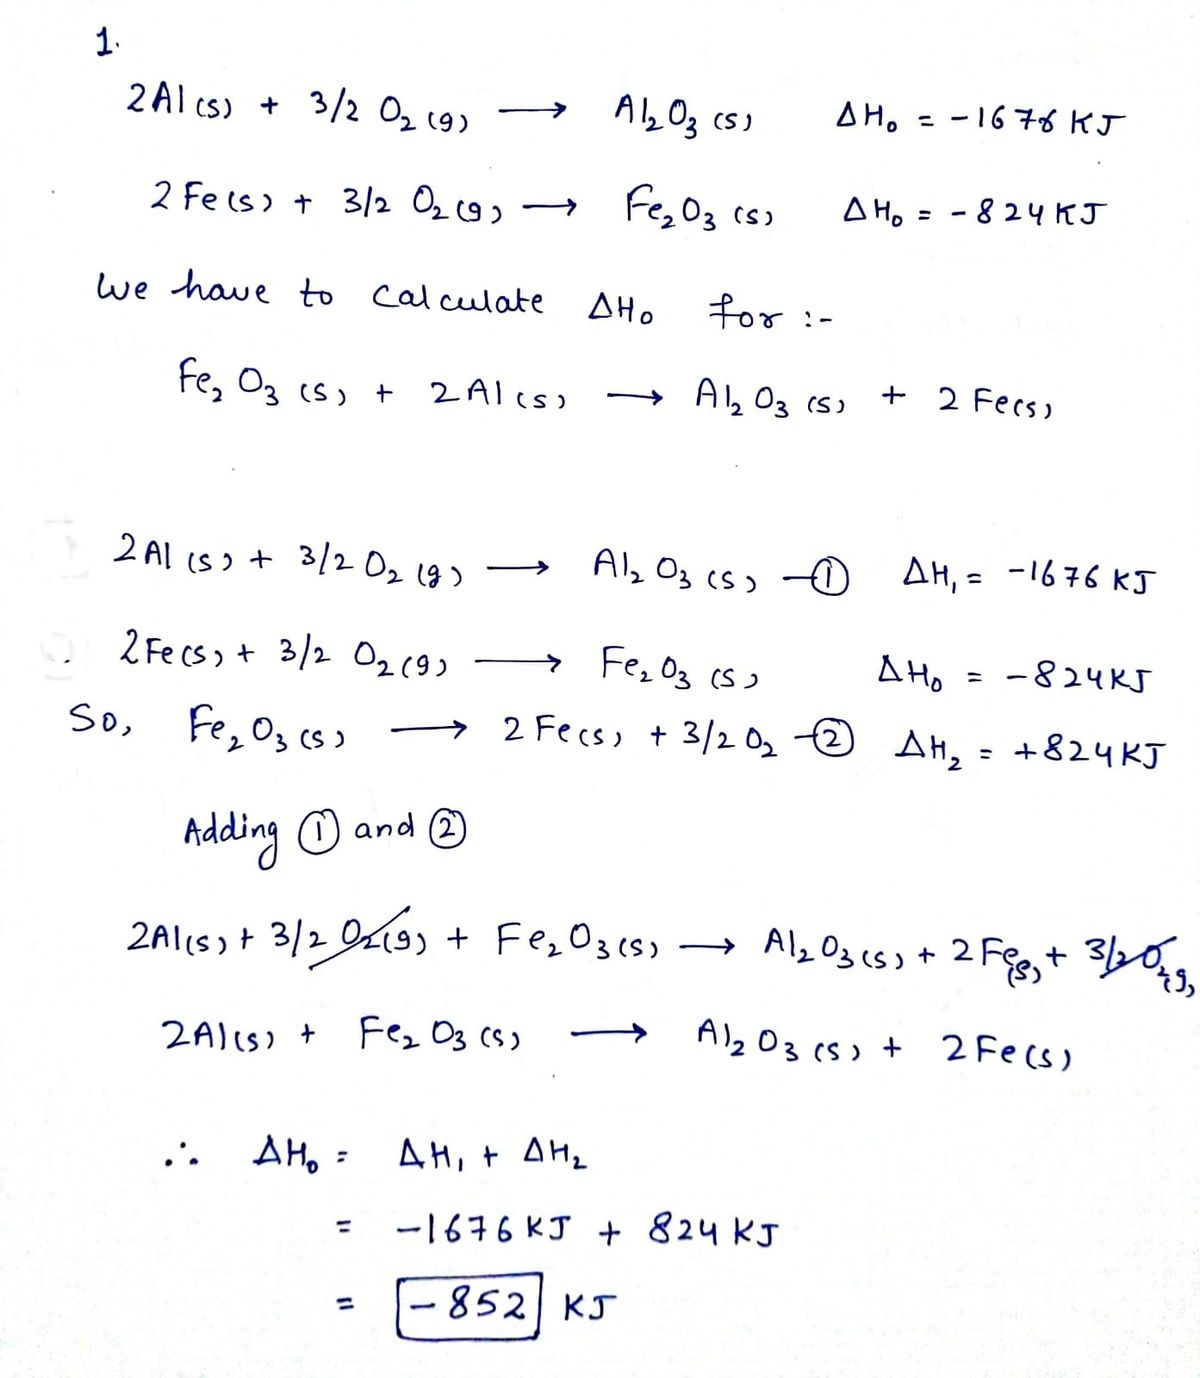 1.
2Al (s) + 3/2 O₂ (g) ⟶ Al₂O₃ (s) ΔH₀ = -1676 KJ
2 Fe (s) + 3/2 O₂ (g) ⟶ Fe₂O₃ (s) ΔH₀ = -824 KJ
We have to calculate ΔH₀ for :-
Fe₂O₃ (s) + 2Al (s) ⟶ Al₂O₃ (s) + 2 Fe (s)
2Al (s) + 3/2 O₂ (g) ⟶ Al₂O₃ (s) —① ΔH₁ = -1676 KJ
2Fe (s) + 3/2 O₂ (g) ⟶ Fe₂O₃ (s) ΔH₀ = -824 KJ
So, Fe₂O₃ (s) ⟶ 2 Fe (s) + 3/2 O₂ —② ΔH₂ = +824 KJ
Adding ① and ②
2Al (s) + 3/2 O₂ (g) + Fe₂O₃ (s) ⟶ Al₂O₃ (s) + 2 Fe (s) + 3/2 O₂ (g)
2Al (s) + Fe₂O₃ (s) ⟶ Al₂O₃ (s) + 2 Fe (s)
∴ ΔH₀ = ΔH₁ + ΔH₂
= -1676 KJ + 824 KJ
= -852 KJ